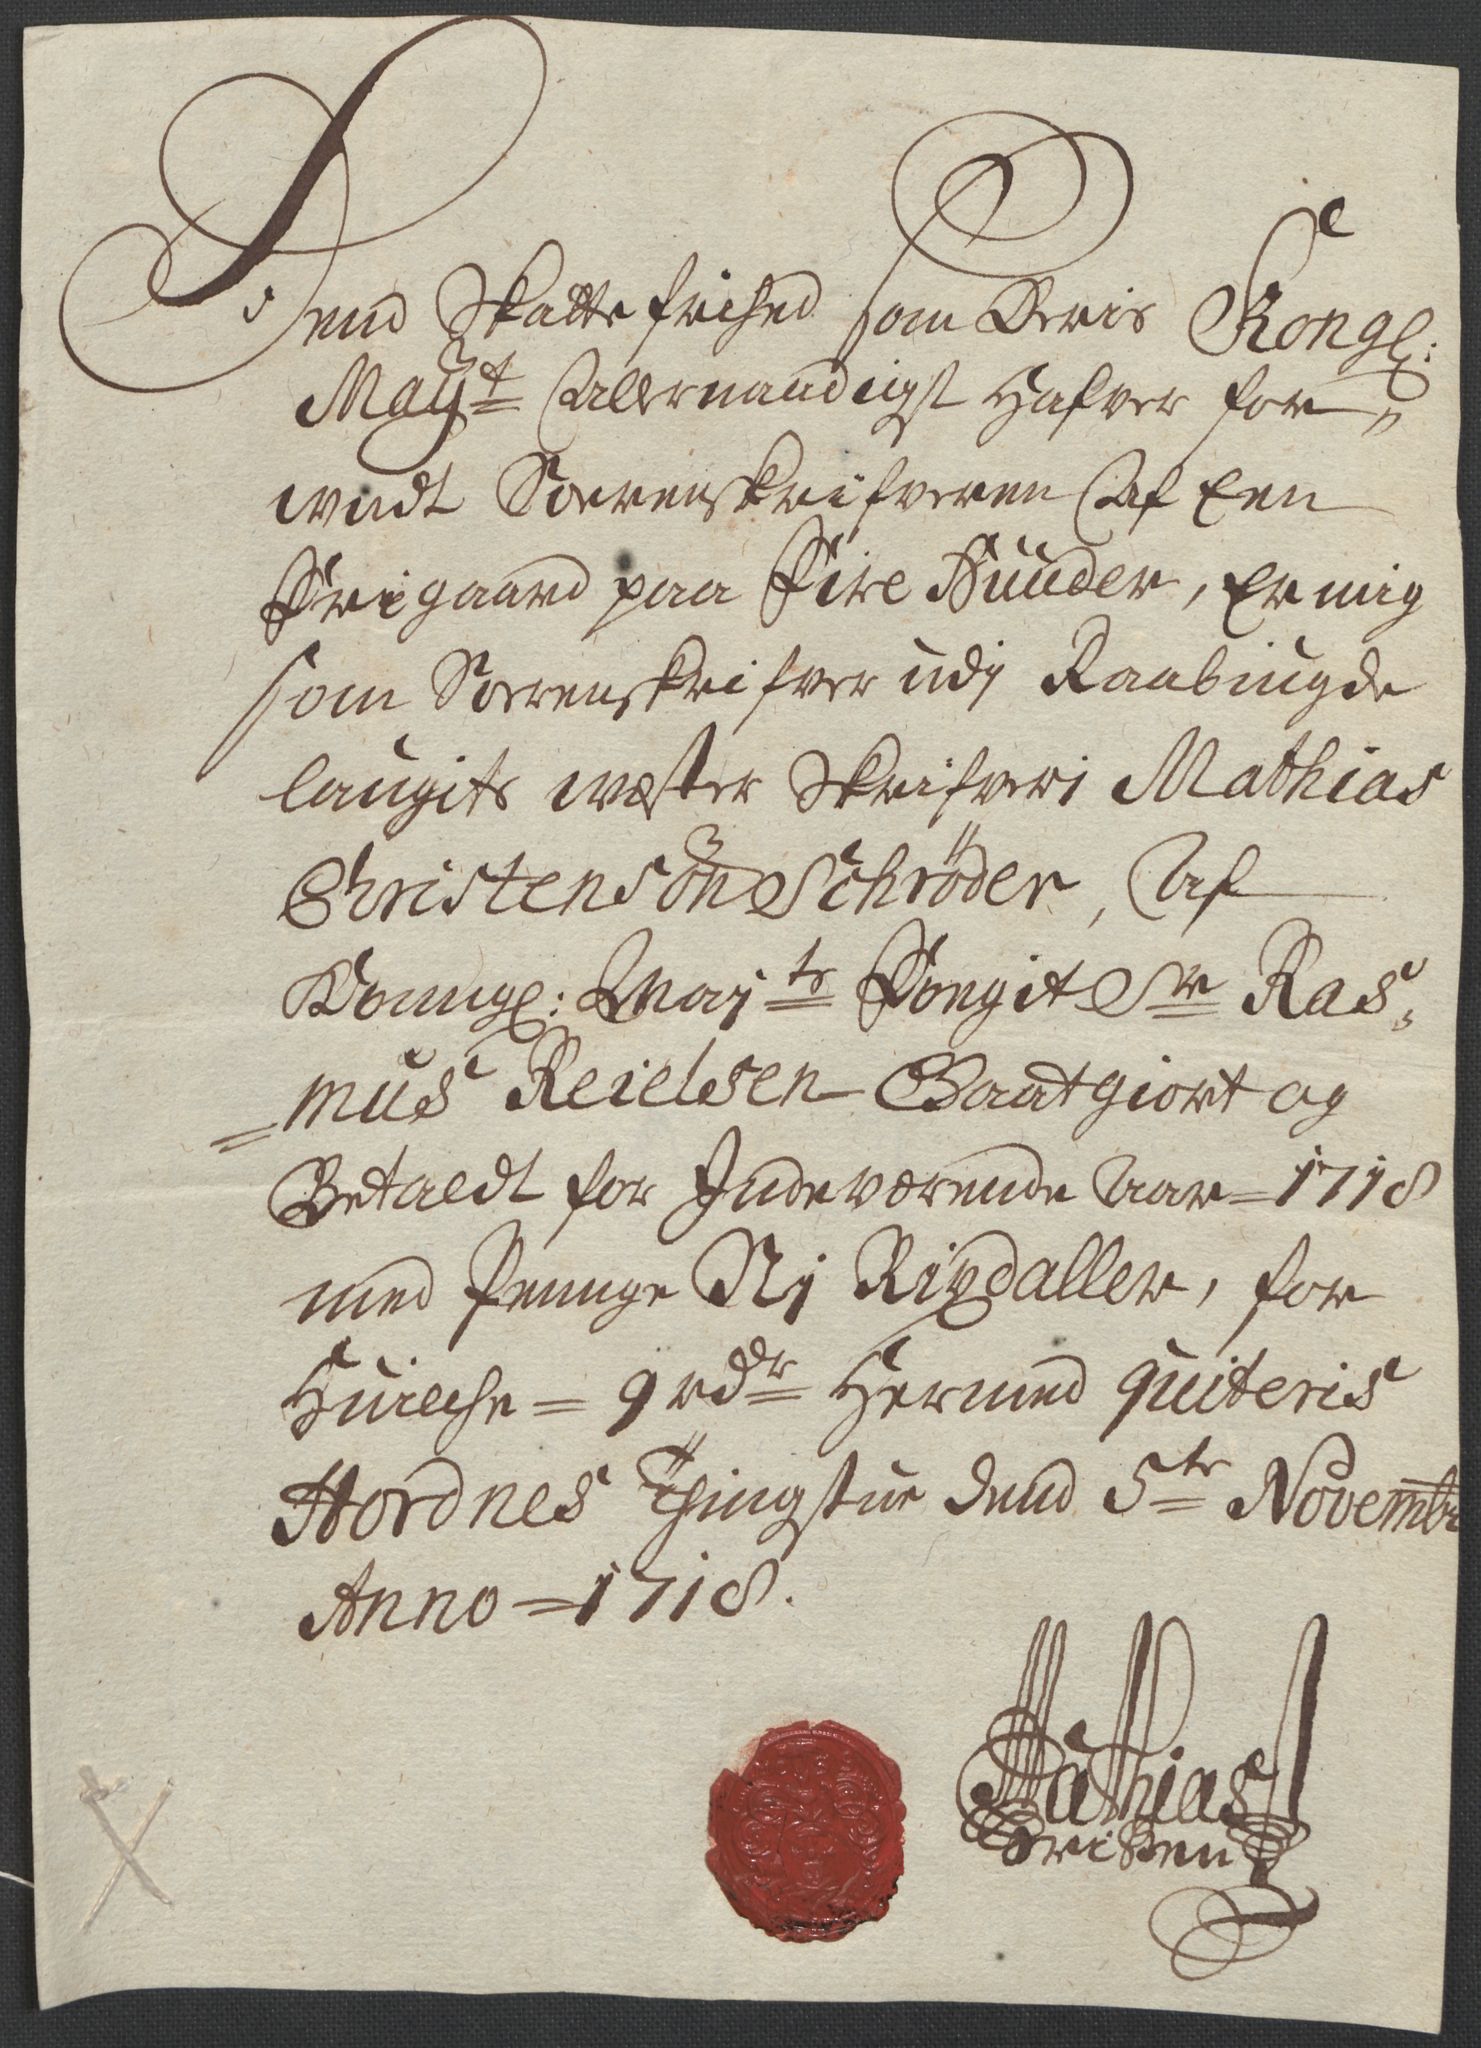 Dend Skattefrihed som Deris Kongl:
May:t Allernaadigst Hafver for¬
undt Sorrenskrifveren Af Een
Friigaard paa Fire Huuder, Er mig
som Sorrenskrifver udj Raabiugde
laugits wester Skrifveri Mathias
Christensön Schröder, Af
Kongl: Maj:ts Fougit Sr Ras,
=mus Reielsen Gaatgiort og
Betaldt for Indeværende Aar=1718
med Penge Nj Rixdaller, for
Huilche= 9 rdr= Hermed quiteris
Hordnes Thingstue dend 5te Novembr
Anno=1718.
Mathias
Cristens